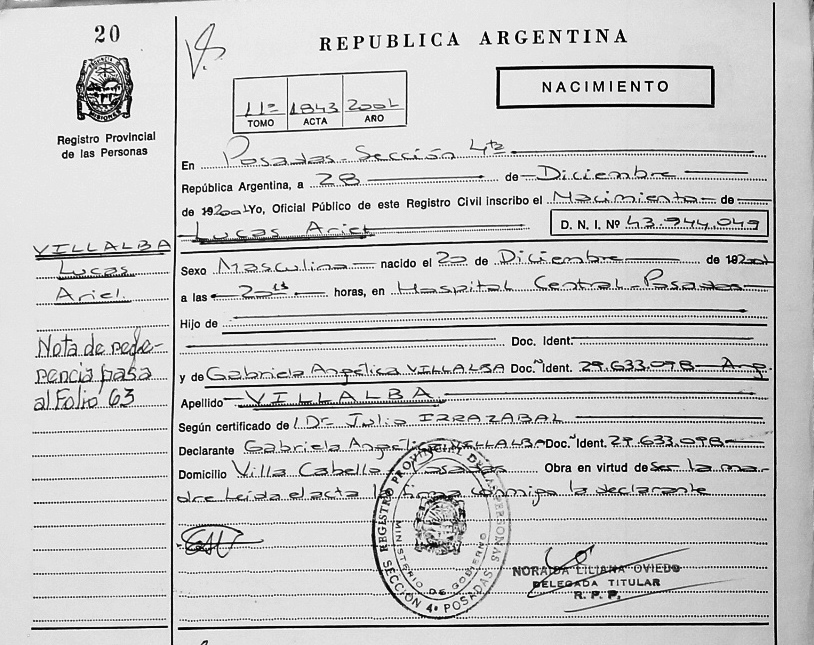 20
REPUBLICA ARGENTINA
NACIMIENTO
PROVINCIA DE MISIONES
Registro Provincial
de las Personas
11º 1843 2001
TOMO ACTA AÑO
En Posadas-Sección 4ta
República Argentina, a 28 de Diciembre
de 2001 Yo, Oficial Público de este Registro Civil inscribo el Nacimiento de
Lucas Ariel D. N. I. Nº 43.944.049
VILLALBA
Lucas
Ariel.
Sexo Masculino nacido el 20 de Diciembre de 2001
a las 20 horas, en Hospital Central-Posadas
Hijo de
Doc. Ident.
y de Gabriela Angélica VILLALBA Doc. Ident. 29.633.098 Arg.
Apellido VILLALBA
Según certificado de Dr. Julia IRRAZABAL
Declarante Gabriela Angélica VILLALBA Doc. Ident. 29.633.098
Domicilio Villa Cabello Posadas Obra en virtud de Ser la ma-
dre Leída el acta la firma conmigo la declarante
Nota de refe-
rencia pasa
al Folio 63
REGISTRO PROVINCIAL DE LAS PERSONAS
MINISTERIO DE GOBIERNO
SECCIÓN 4ª POSADAS
NORAIDA LILIANA OVIEDO
DELEGADA TITULAR
R. P. P.